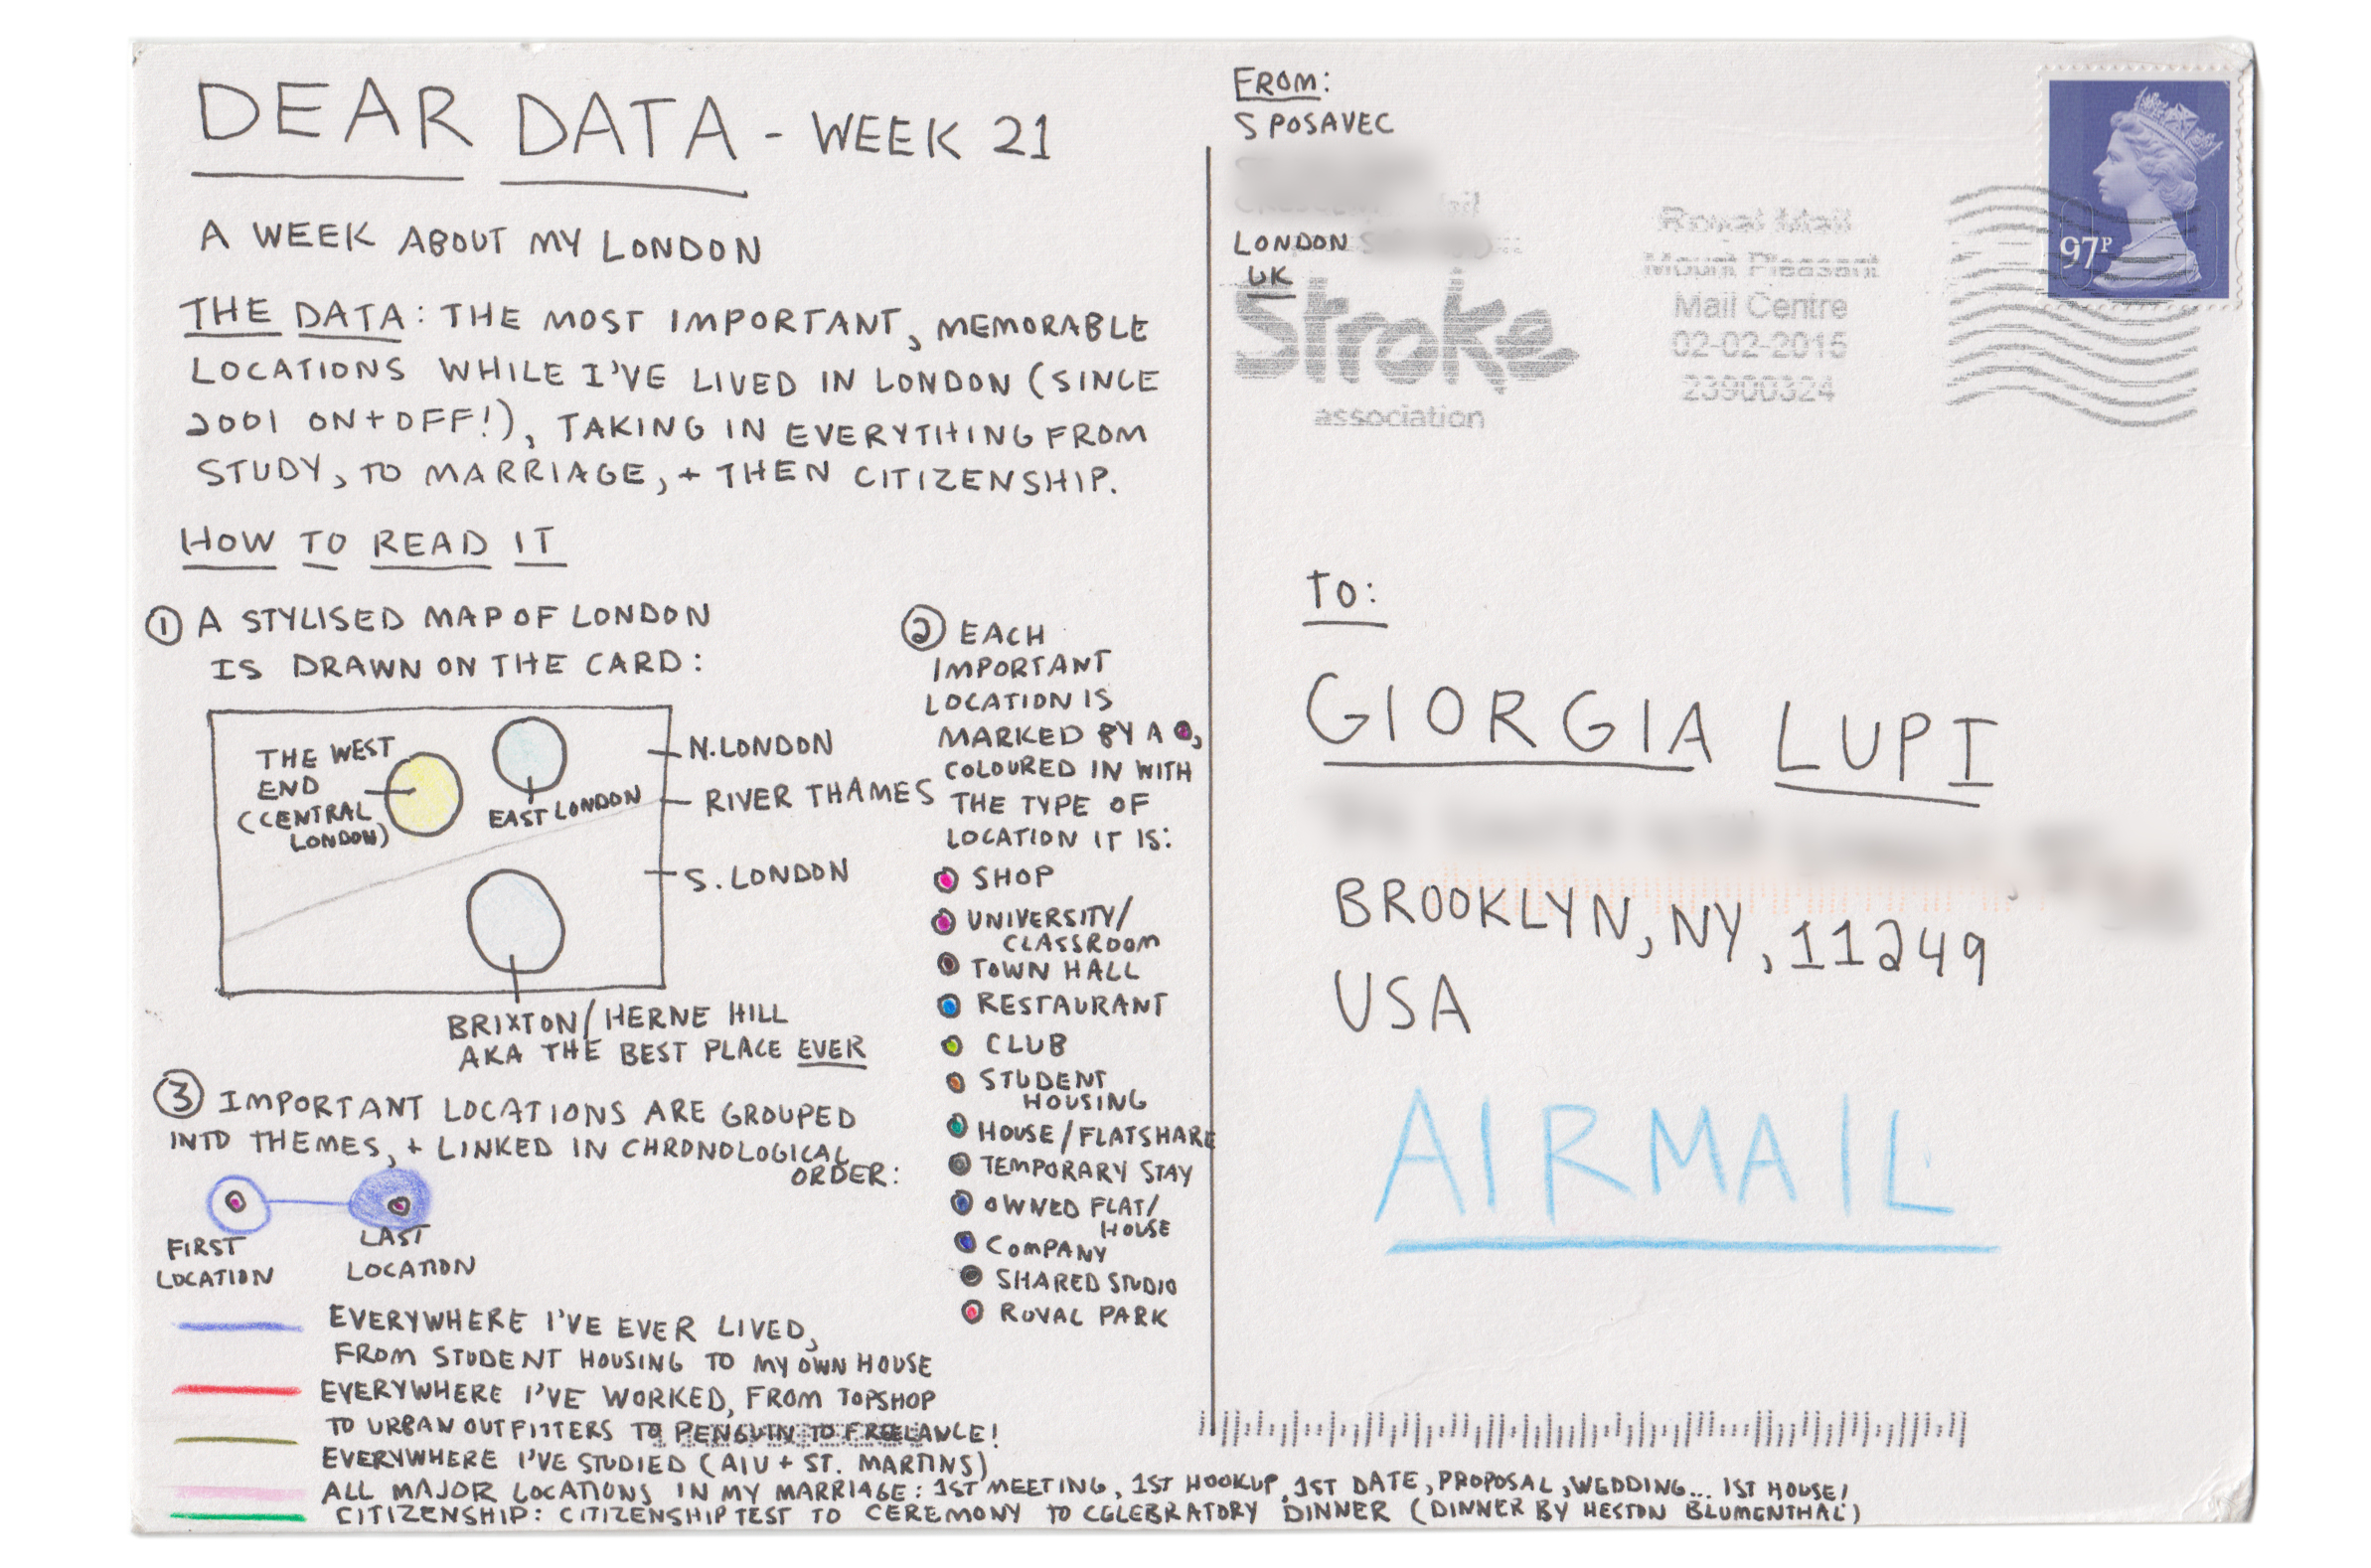 DEAR DATA - WEEK 21
A WEEK ABOUT MY LONDON
THE DATA: THE MOST IMPORTANT, MEMORABLE
LOCATIONS WHILE I'VE LIVED IN LONDON (SINCE
2001 ON + OFF!), TAKING IN EVERYTHING FROM
STUDY, TO MARRIAGE, + THEN CITIZENSHIP.
HOW TO READ IT
① A STYLISED MAP OF LONDON
IS DRAWN ON THE CARD:
THE WEST
END
(CENTRAL
LONDON)
EAST LONDON
N. LONDON
RIVER THAMES
S. LONDON
BRIXTON/HERNE HILL
AKA THE BEST PLACE EVER
② EACH
IMPORTANT
LOCATION IS
MARKED BY A ,
COLOURED IN WITH
THE TYPE OF
LOCATION IT IS:
SHOP
UNIVERSITY/
CLASSROOM
TOWN HALL
RESTAURANT
CLUB
STUDENT
HOUSING
HOUSE/FLATSHARE
TEMPORARY STAY
OWNED FLAT/
HOUSE
COMPANY
SHARED STUDIO
ROYAL PARK
③ IMPORTANT LOCATIONS ARE GROUPED
INTO THEMES, + LINKED IN CHRONOLOGICAL
ORDER:
FIRST
LOCATION
LAST
LOCATION
EVERYWHERE I'VE EVER LIVED,
FROM STUDENT HOUSING TO MY OWN HOUSE
EVERYWHERE I'VE WORKED, FROM TOPSHOP
TO URBAN OUTFITTERS TO PENGUIN TO FREELANCE!
EVERYWHERE I'VE STUDIED (AIU + ST. MARTINS)
ALL MAJOR LOCATIONS IN MY MARRIAGE: 1ST MEETING, 1ST HOOKUP, 1ST DATE, PROPOSAL, WEDDING... 1ST HOUSE!
CITIZENSHIP: CITIZENSHIP TEST TO CEREMONY TO CELEBRATORY DINNER (DINNER BY HESTON BLUMENTHAL)
FROM:
S POSAVEC
LONDON
UK
Stroke
association
Royal Mail
Mount Pleasant
Mail Centre
02-02-2015
23900324
97P
TO:
GIORGIA LUPI
BROOKLYN, NY, 11249
USA
AIRMAIL